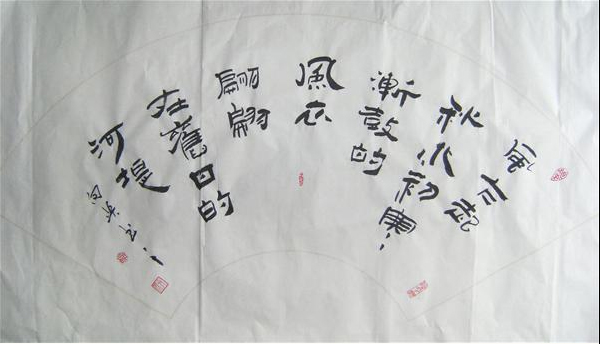 風乍起
秋水初寒
漸鼓的
風衣
翩翩
在舊日的
河堤